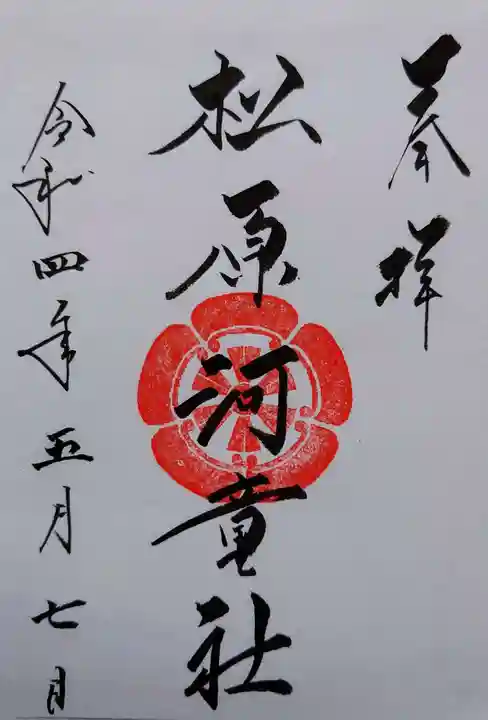 奉拝
松原河童社
令和四年五月七日